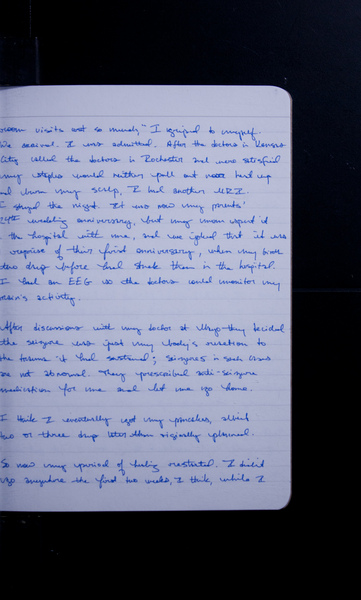 room visits not so much," I quipped to myself.
We arrived. I was admitted. After the doctors in Kansas
City called the doctors in Rochester and were satisfied
my staples would neither pull out nor heat up
and burn my scalp, I had another MRI.
I stayed the night. It was now my parents'
24th wedding anniversary, but my mom spent it
in the hospital with me, and we joked that it was
reprise of their first anniversary, when my birth
two days before had stuck them in the hospital.
I had an EEG so the doctors could monitor my
brain's activity.
After discussions with my doctor at Mayo they decided
the seizure was just my body's reaction to
the trauma it had sustained; seizures in such cases
are not abnormal. They prescribed anti-seizure
medication for me and let me go home.
I think I eventually got my pancakes, albeit
two or three days later than originally planned.
So now my period of feeling restarted. I didn't
go anywhere the first two weeks, I think, while I